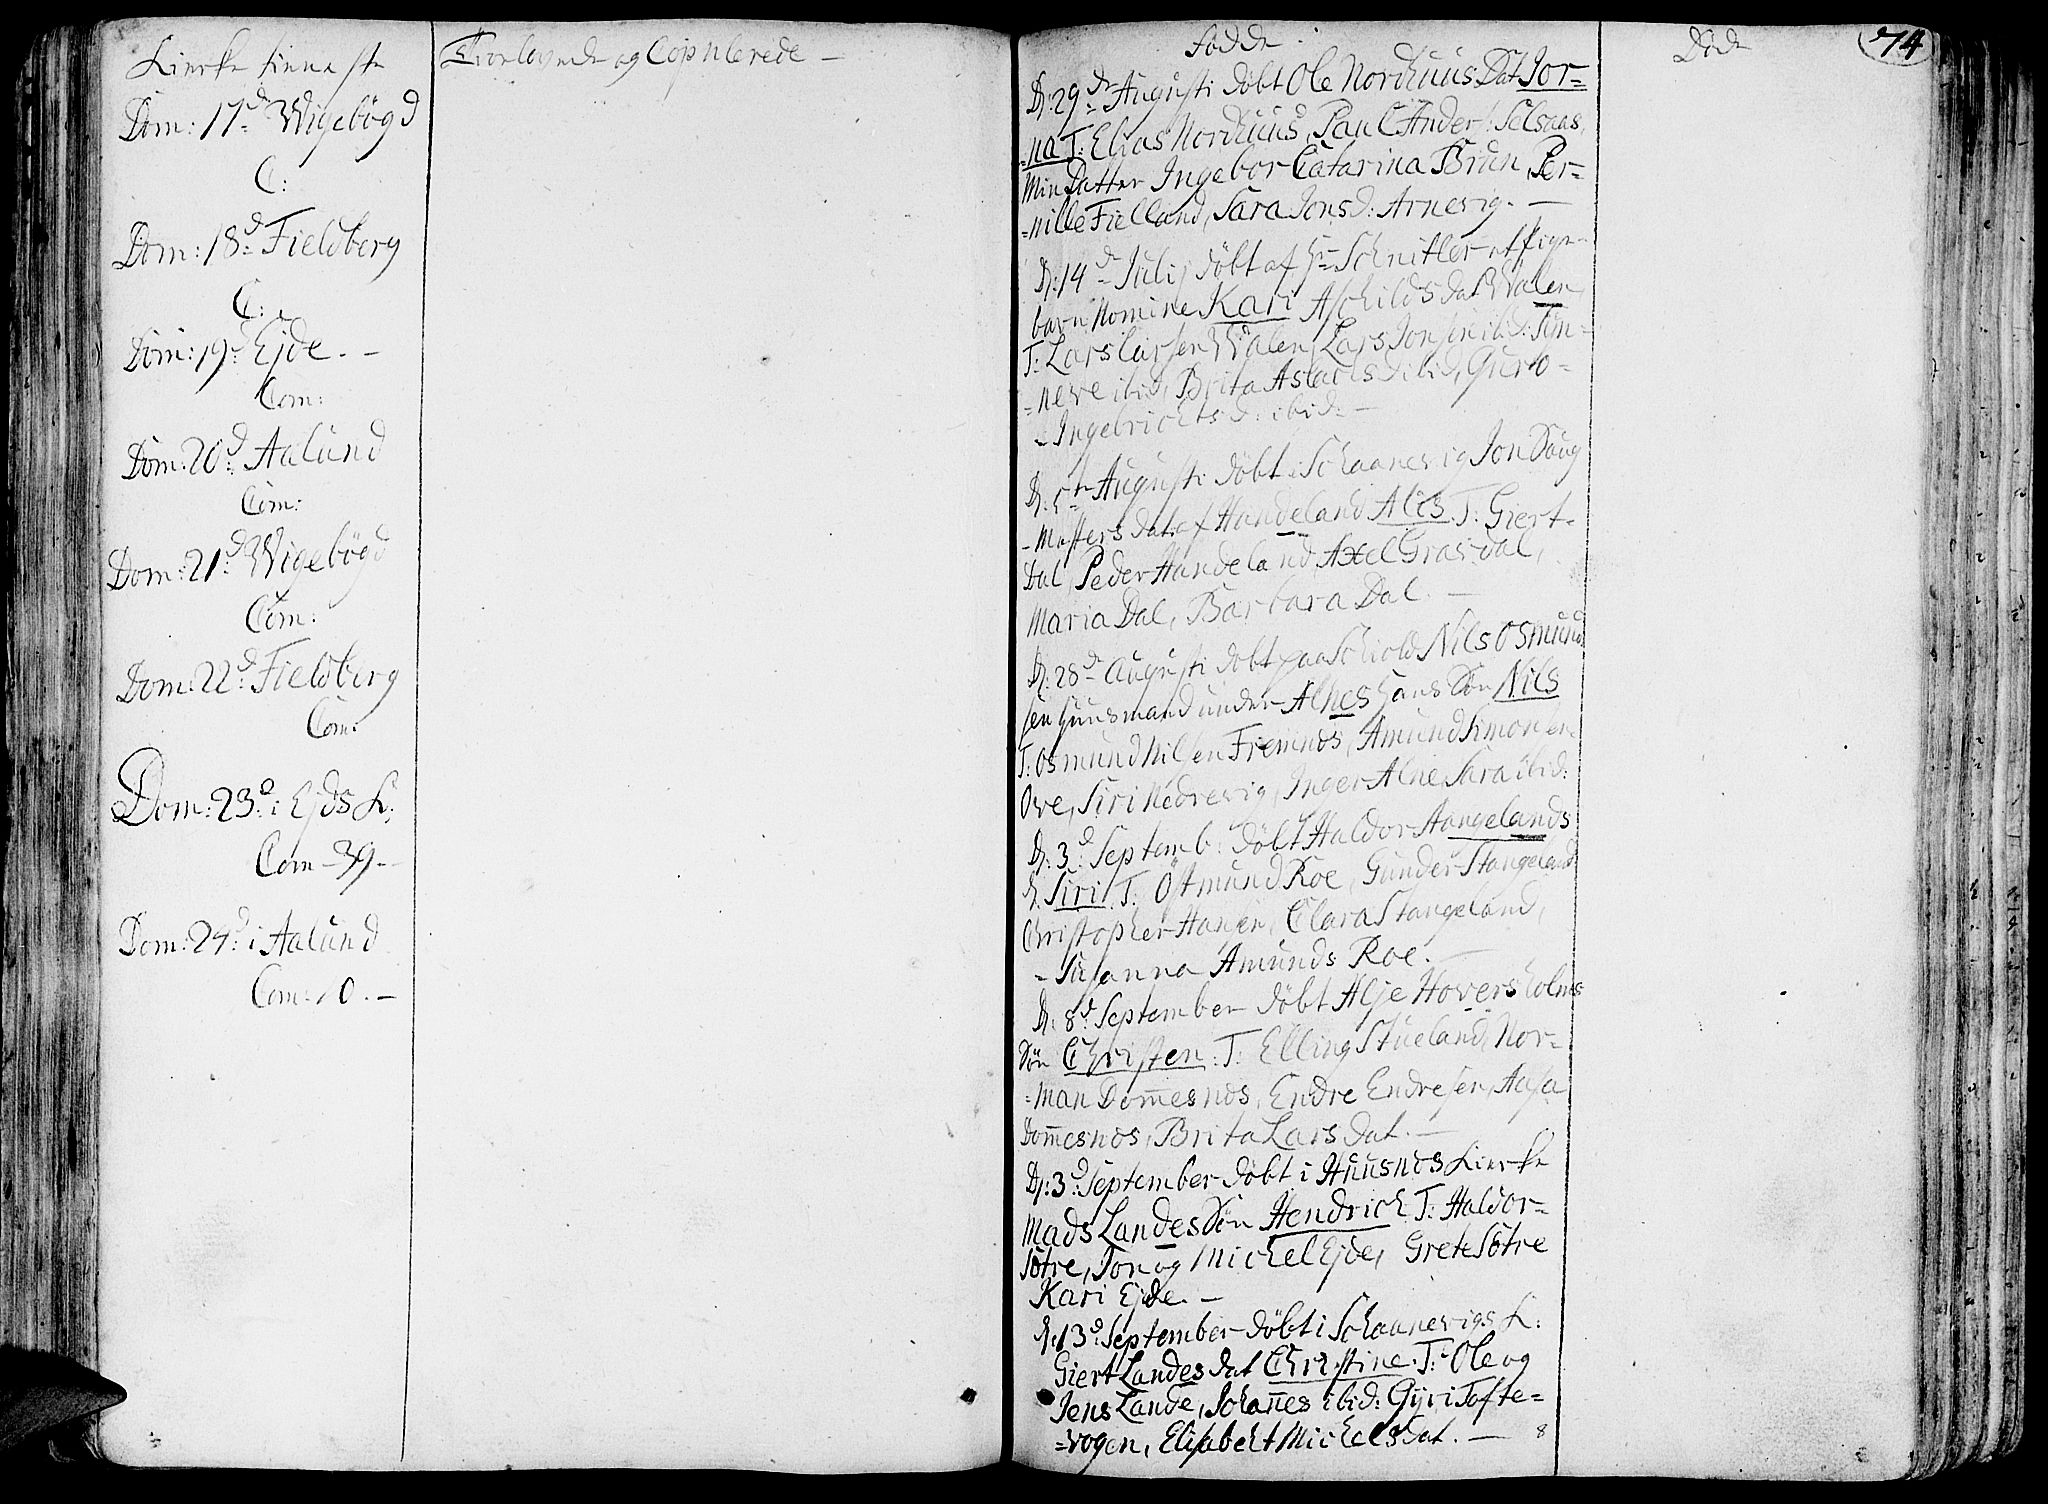 Kierke tienneste
Dom: 17d Wigebögd
C:
Dom: 18d Fieldberg
C:
Dom: 19d Ejde. -
Com:
Dom: 20d Aalund
Com:
Dom: 21d Wigebögd
Com:
Dom: 22d Fieldberg
Com:
Dom: 23d i Ejds K:
Com - 39 -
Dom: 24d i Aalund
Com: 10. -
Troelovede og Copulerede -
Födde.
D: 29de Augusti döbt Ole Nordhuus Dat Jor=
=na T: Elias Nordhuus, Paul Anders: Selsaas,
Min Datter Ingebor Catarina Brun, Per=
=nille Fielland, Sara Jonsd: Arnevig. -
D: 14d Julij döbt af Hr Schnitler et
barn Nomine Kari Aschilds dat Walen
T: Lars Larsen Walen, Lars Jonsen ibid:
=neve ibid, Brita Aslacls d ibid, Guro=
- Ingebrichts d: ibid: -
D. 5te Augusti döbt i Schaanevig Jon Saug
- Mesters dat af Handeland Alis T: Giert-
Dal, Peder Handeland, Axel Grasdal,
Maria Dal, Barbara Dal. -
D: 28d Augusti döbt paa Schiold Nils Osmund
sen Huusmand under Alnes Hans Sön Nils
T: Osmund Nilsen Fremnæs, Amund Simonsen
Ove, Siri Nedrevig, Inger Alne, Sara ibid:
D: 3d: Septemb: döbt Haldor Aangelands
d. Siri T: Östmund Roe, Gunder Stangeland
Christopher Hansen, Clara Stangeland,
- Susanna Amunds Roe. -
D. 8d September döbt Alje Hoversholms
Sön Christen. T: Elling Stueland, Nor=
=man Dom̅esnæs, Endre Endresen, Aasa
Dom̅esnæs, Brita Lars dat. -
D: 3d: September döbt i Huusnæs Kierke
Mads Landes Sön Hendrich T: Haldor-
Sötre, Jon og Michel Ejde, Grete Sötre
Kari Ejde. -
D: 13d: September döbt i Schaanevigs K:
Giert Landes dat Christine. T: Ole og
Jens Lande, Johan̅es ibid: Gyri Tofte=
=vogen, Elisabeht Michels dat. - 8
Döde
74